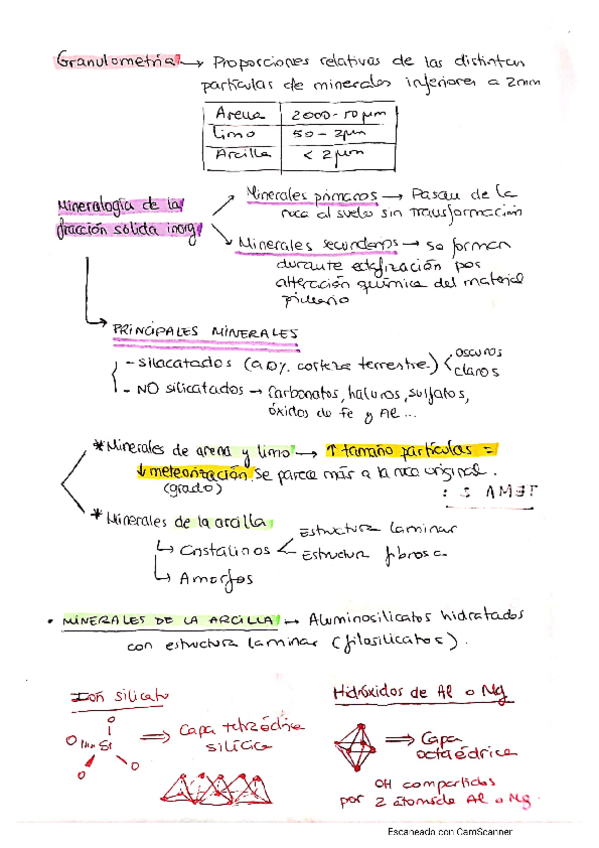 Granulometría → Proporciones relativas de las distintas
partículas de minerales inferiores a 2mm
Arena 2000-50 μm
Limo 50-2μm
Arcilla < 2μm
Mineralogía de la
fracción sólida inorg
Minerales primarios → Pasan de la
roca al suelo sin transformación
Minerales secundarios → se forman
durante edafización por
alteración química del material
primario
PRINCIPALES MINERALES
- silacatados (90% corteza terrestre) < oscuros
claros
- NO silicatados → Carbonatos, haluros, sulfatos,
óxidos de Fe y Al ...
* Minerales de arena y limo → ↑ tamaño partículas =
↓ meteorización se parece más a la roca original.
(grado)
* Minerales de la arcilla
Cristalinos < Estructura laminar
Estructura fibrosa
Amorfos
• MINERALES DE LA ARCILLA → Aluminosilicatos hidratados
con estructura laminar (filosilicatos).
Ión silicato
O
O Si
O O
⇒ Capa tetraédrica
silícica
Hidróxidos de Al o Mg
⇒ Capa
octaédrica
OH compartidos
por 2 átomos de Al o Mg.
Escaneado con CamScanner